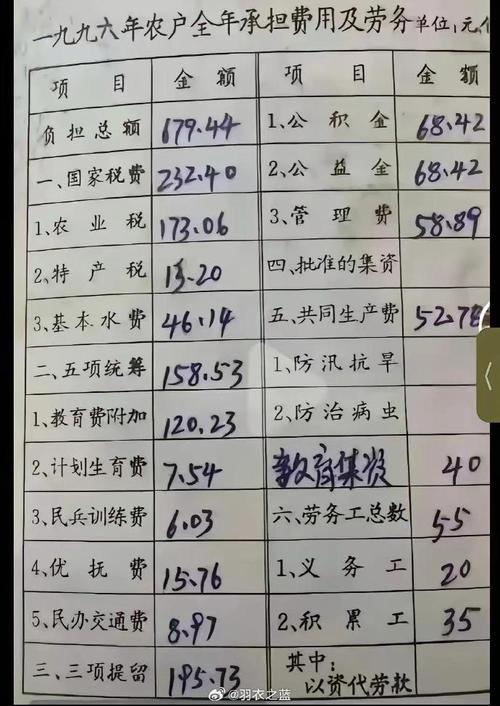 一九九六年农户全年承担费用及劳务 单位:元、
项目 金额 项目 金额
负担总额 679.44 1、公积金 68.42
一、国家税费 232.40 2、公益金 68.42
1、农业税 173.06 3、管理费 58.89
2、特产税 13.20 四、批准的集资
3、基本水费 46.14 五、共同生产费 52.78
二、五项统筹 158.53 1、防汛抗旱
1、教育费附加 120.23 2、防治病虫
2、计划生育费 7.54 教育集资 40
3、民兵训练费 6.03 六、劳务工总数 55
4、优抚费 15.76 1、义务工 20
5、民办交通费 8.97 2、积累工 35
三、三项提留 195.73 其中:
以资代劳款
@羽衣之蓝